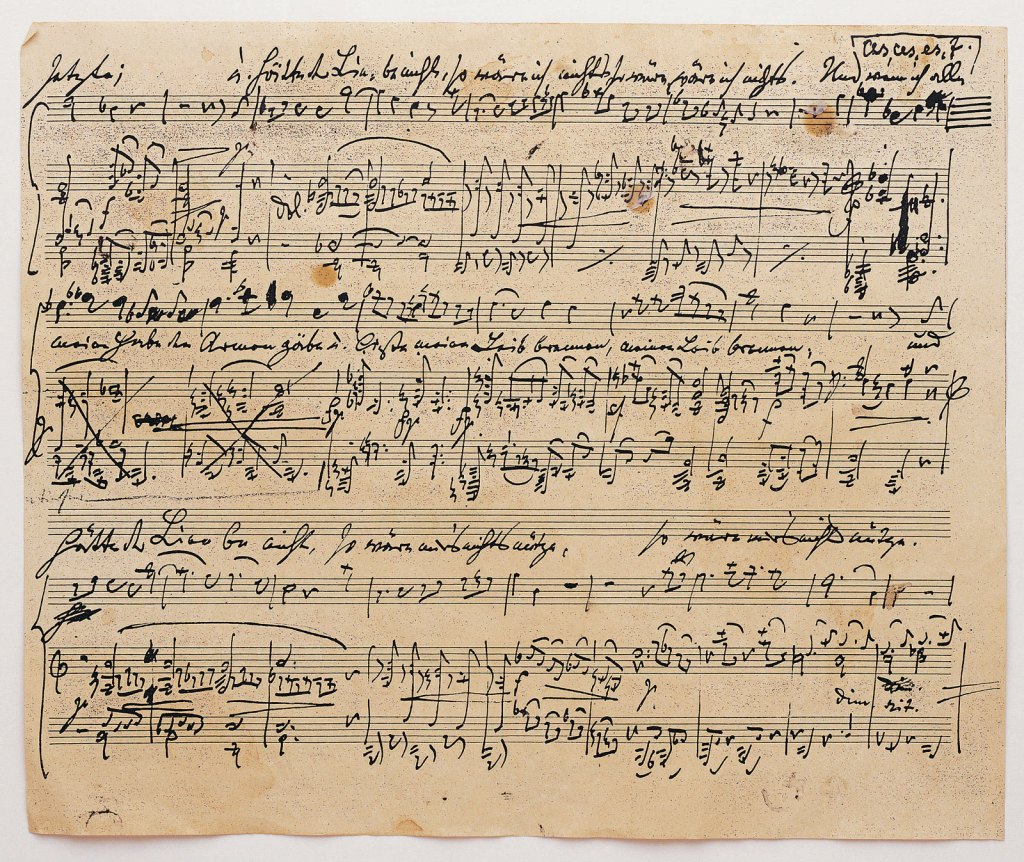 ces ces, es, f.
setzte; u. hätte d Liebe nicht, so wäre ich nichts, so wäre, wäre ich nichts. Und wenn ich alle
dol.
f
meine Habe den Armen gäbe u. ließe meinen Leib brennen, meinen Leib brennen; und
fp
fp
sf
p
hätte d Liebe nicht, so wäre mir's nichts nütze, so wäre mir's nichts nütze.
p
f
p
dim.
rit.